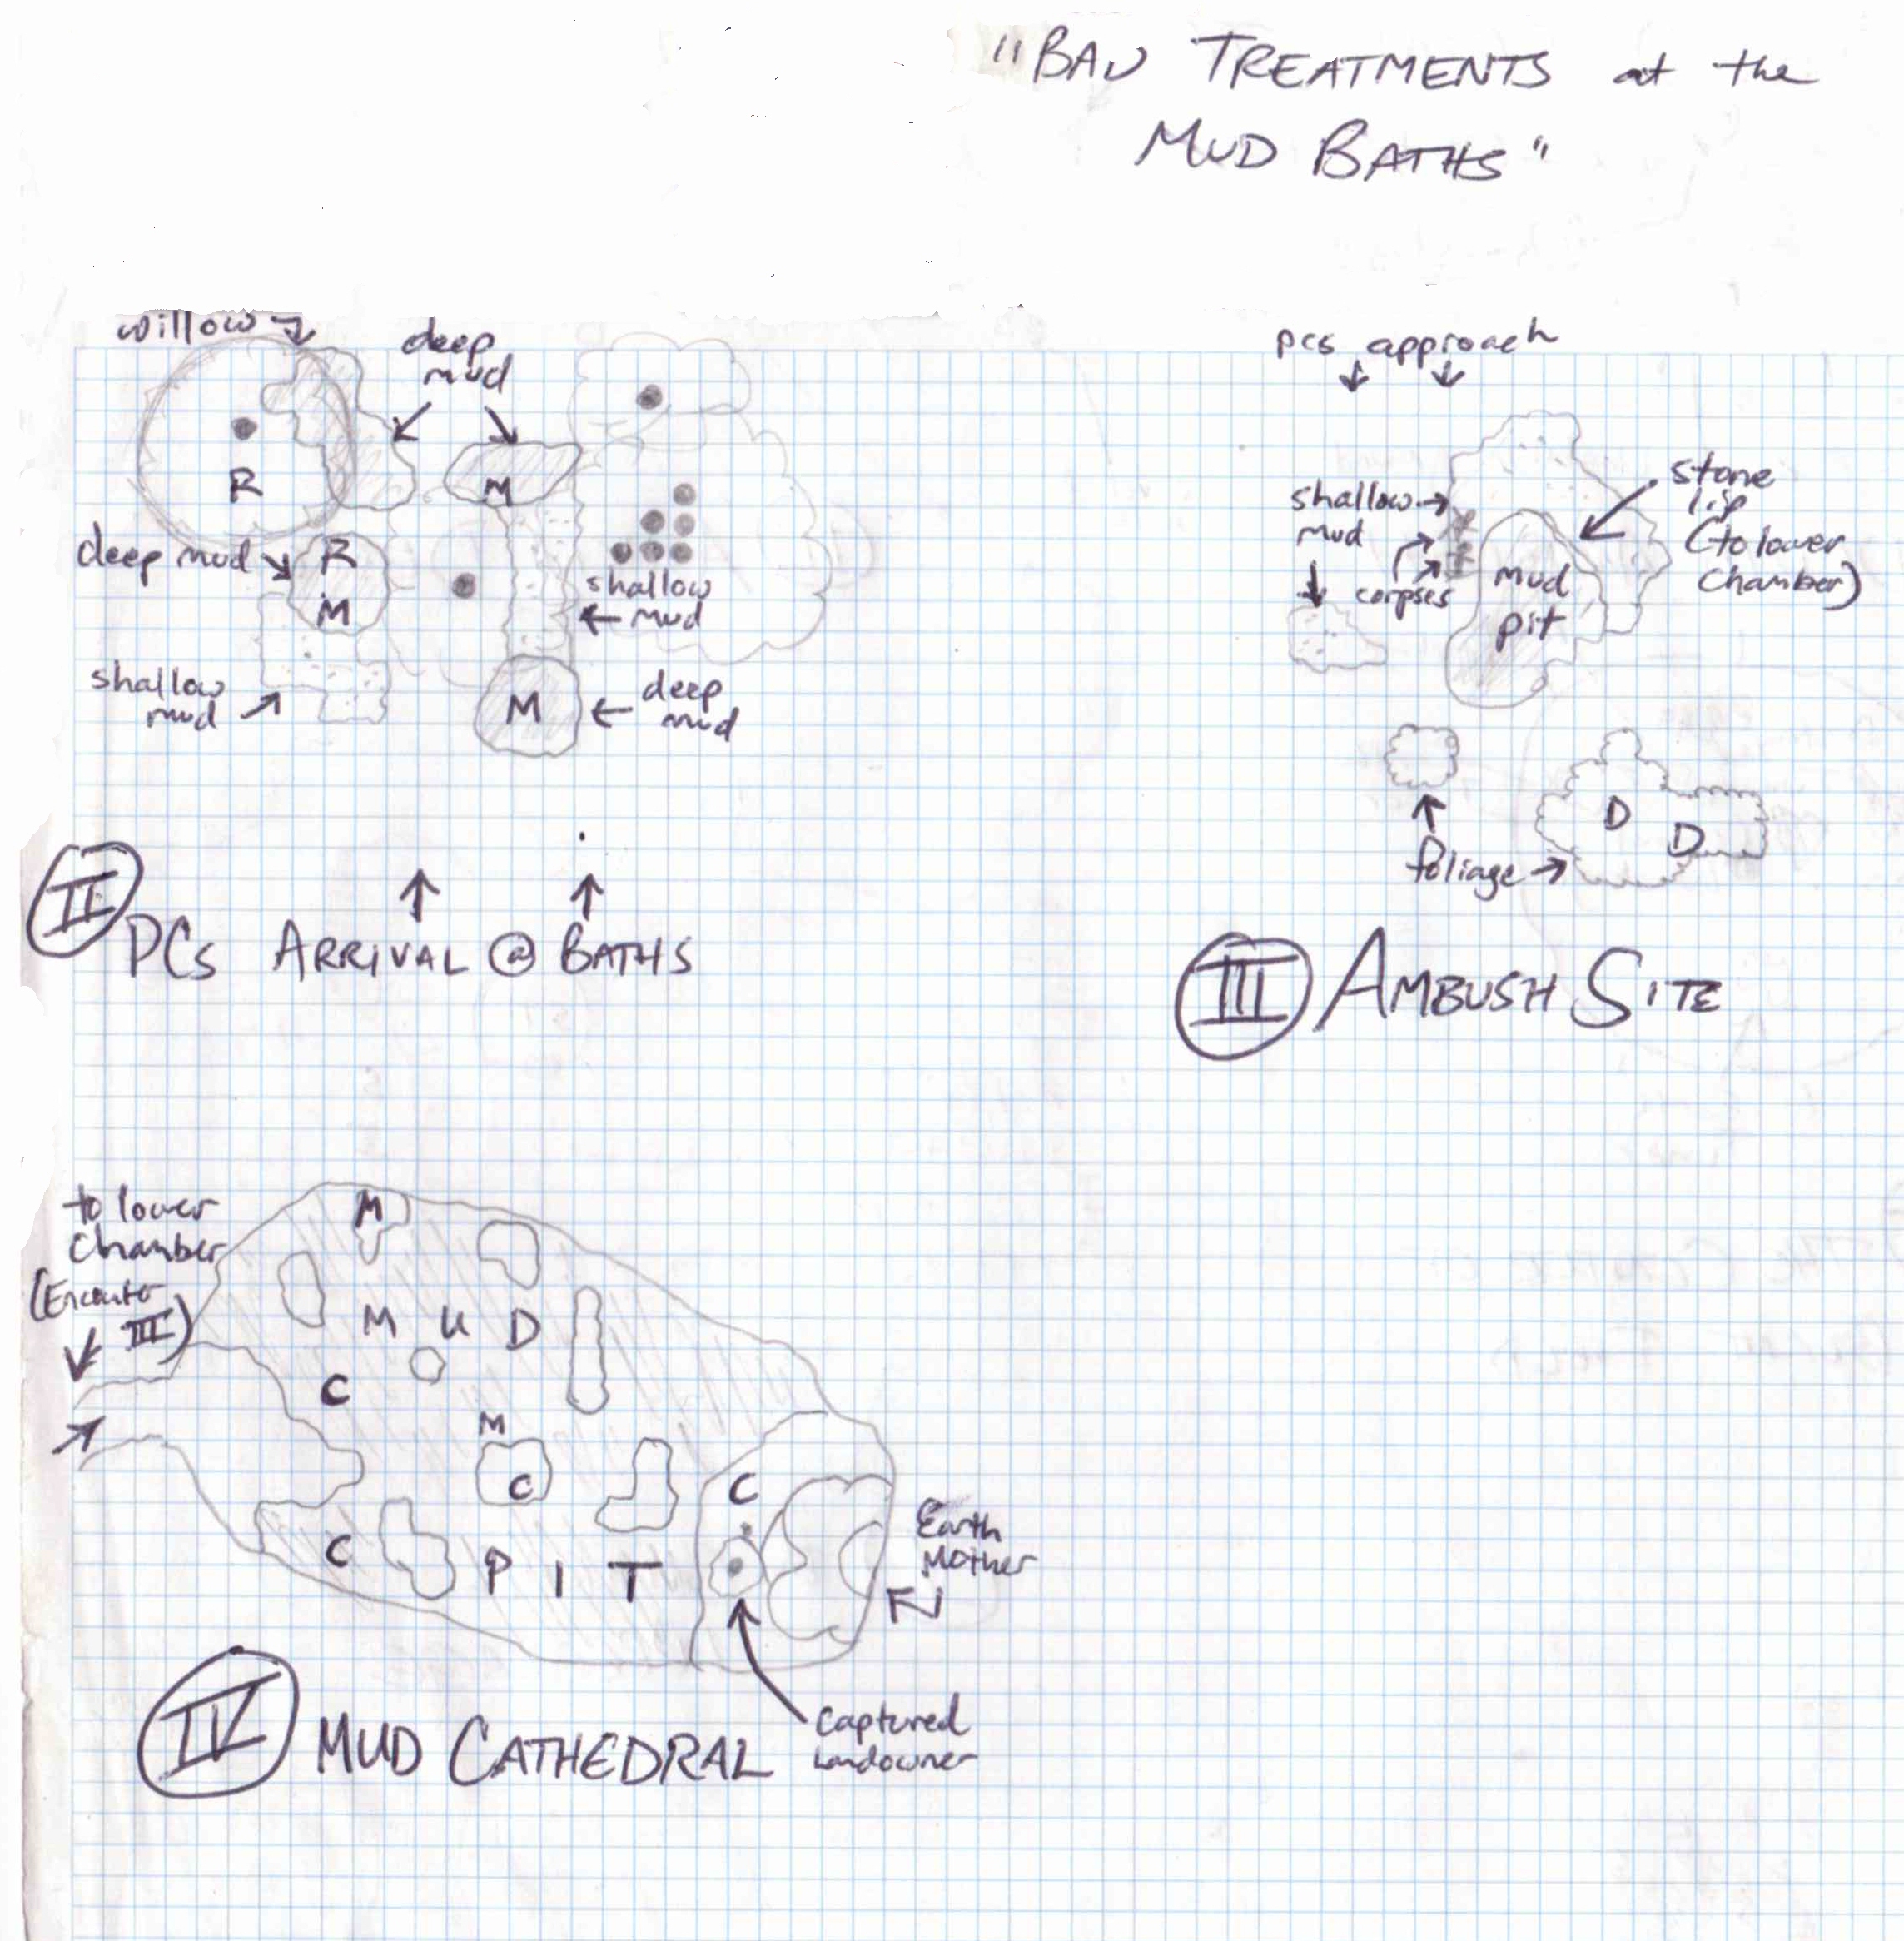 "BAD TREATMENTS at the
MUD BATHS"
willow
deep
mud
R
M
deep mud
R
M
shallow
mud
shallow
mud
M
deep
mud
II
PCs ARRIVAL @ BATHS
pcs approach
shallow
mud
corpses
stone
lip
(to lower
chamber)
mud
pit
D
D
foliage
III
AMBUSH SITE
to lower
chamber
(Encounter
III)
M
M U D
C
M
C
C
C
P I T
Earth
Mother
captured
landowner
IV
MUD CATHEDRAL